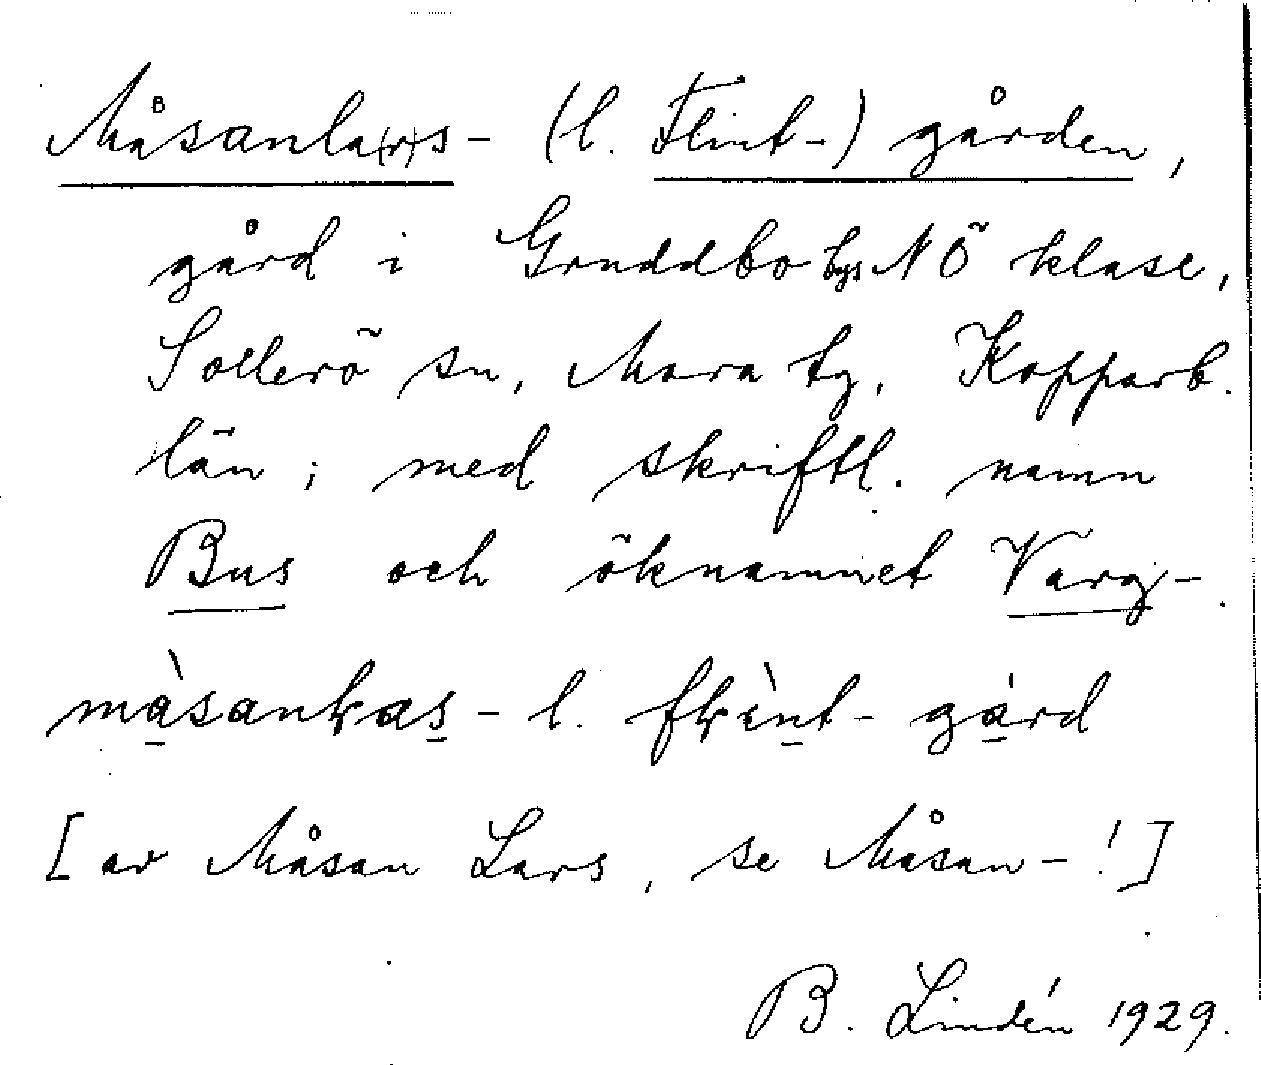 Måsanla(r)s- (l. Flint-) gården,
gård i Gruddbo bys NÖ klase,
Sollerö sn, Mora tg, Kopparb.
län; med skriftl. namn
Bus och öknamnet Varg-.
måsanłas- l. fłìnt- gård
[av Måsan Lars, se Måsan-!]
B. Lindén 1929.